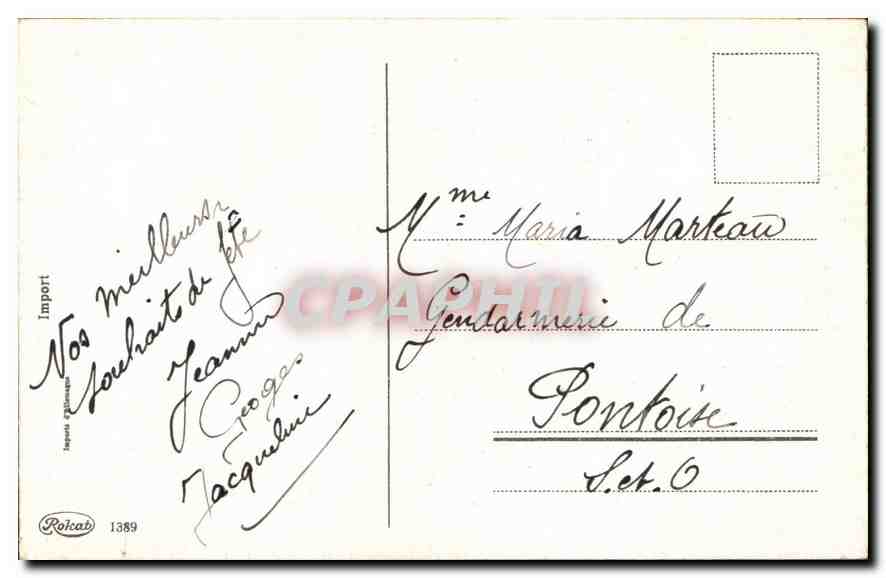 Nos meilleurs
souhaits de fête
Jeannine
Georges
Jacqueline
Import
Importé d'Allemagne
Rokat
1389
Mme Maria Marteau
Gendarmerie de
Pontoise
S. et. O
CPAPHIL